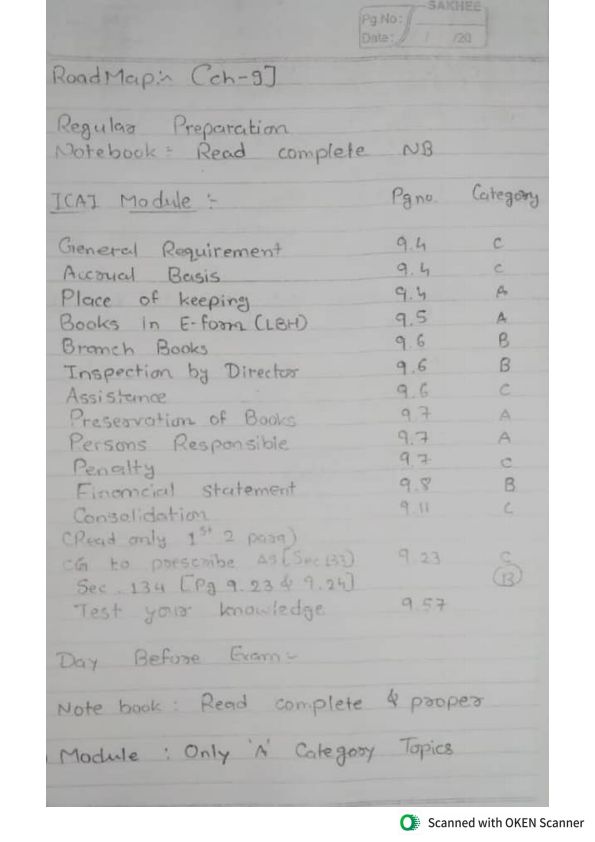 SAKHEE
Pg No:
Date: / /20
RoadMap:~ [ch-9]
Regular Preparation
Notebook = Read complete NB
ICAI Module :- Pg no. Category
General Requirement 9.4 C
Accrual Basis 9.4 C
Place of keeping 9.4 A
Books in E-form (LBH) 9.5 A
Branch Books 9.6 B
Inspection by Director 9.6 B
Assistance 9.6 C
Preservation of Books 9.7 A
Persons Responsible 9.7 A
Penalty 9.7 C
Financial statement 9.8 B
Consolidation 9.11 C
(Read only 1st 2 para)
CG to prescribe AS [Sec 133] 9.23 C
Sec. 134 [Pg 9.23 & 9.24] B
Test your knowledge 9.57
Day Before Exam:~
Note book : Read complete & proper
Module : Only 'A' Category Topics
Scanned with OKEN Scanner